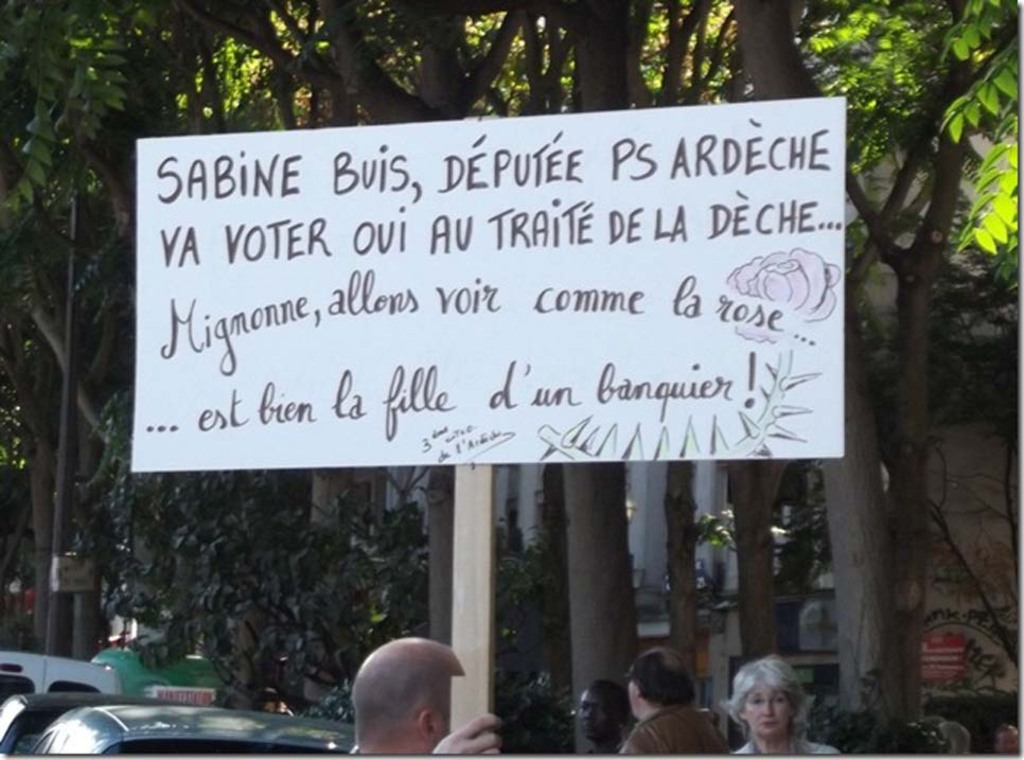 SABINE BUIS, DÉPUTÉE PS ARDÈCHE
VA VOTER OUI AU TRAITÉ DE LA DÈCHE...
Mignonne, allons voir comme la rose...
... est bien la fille d'un banquier !
3ème
de l'Ardèche